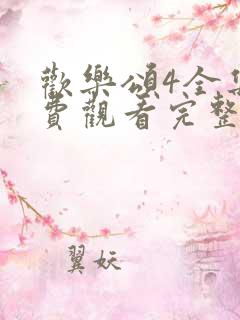 歡樂頌4全集
費觀看完整
翼妖